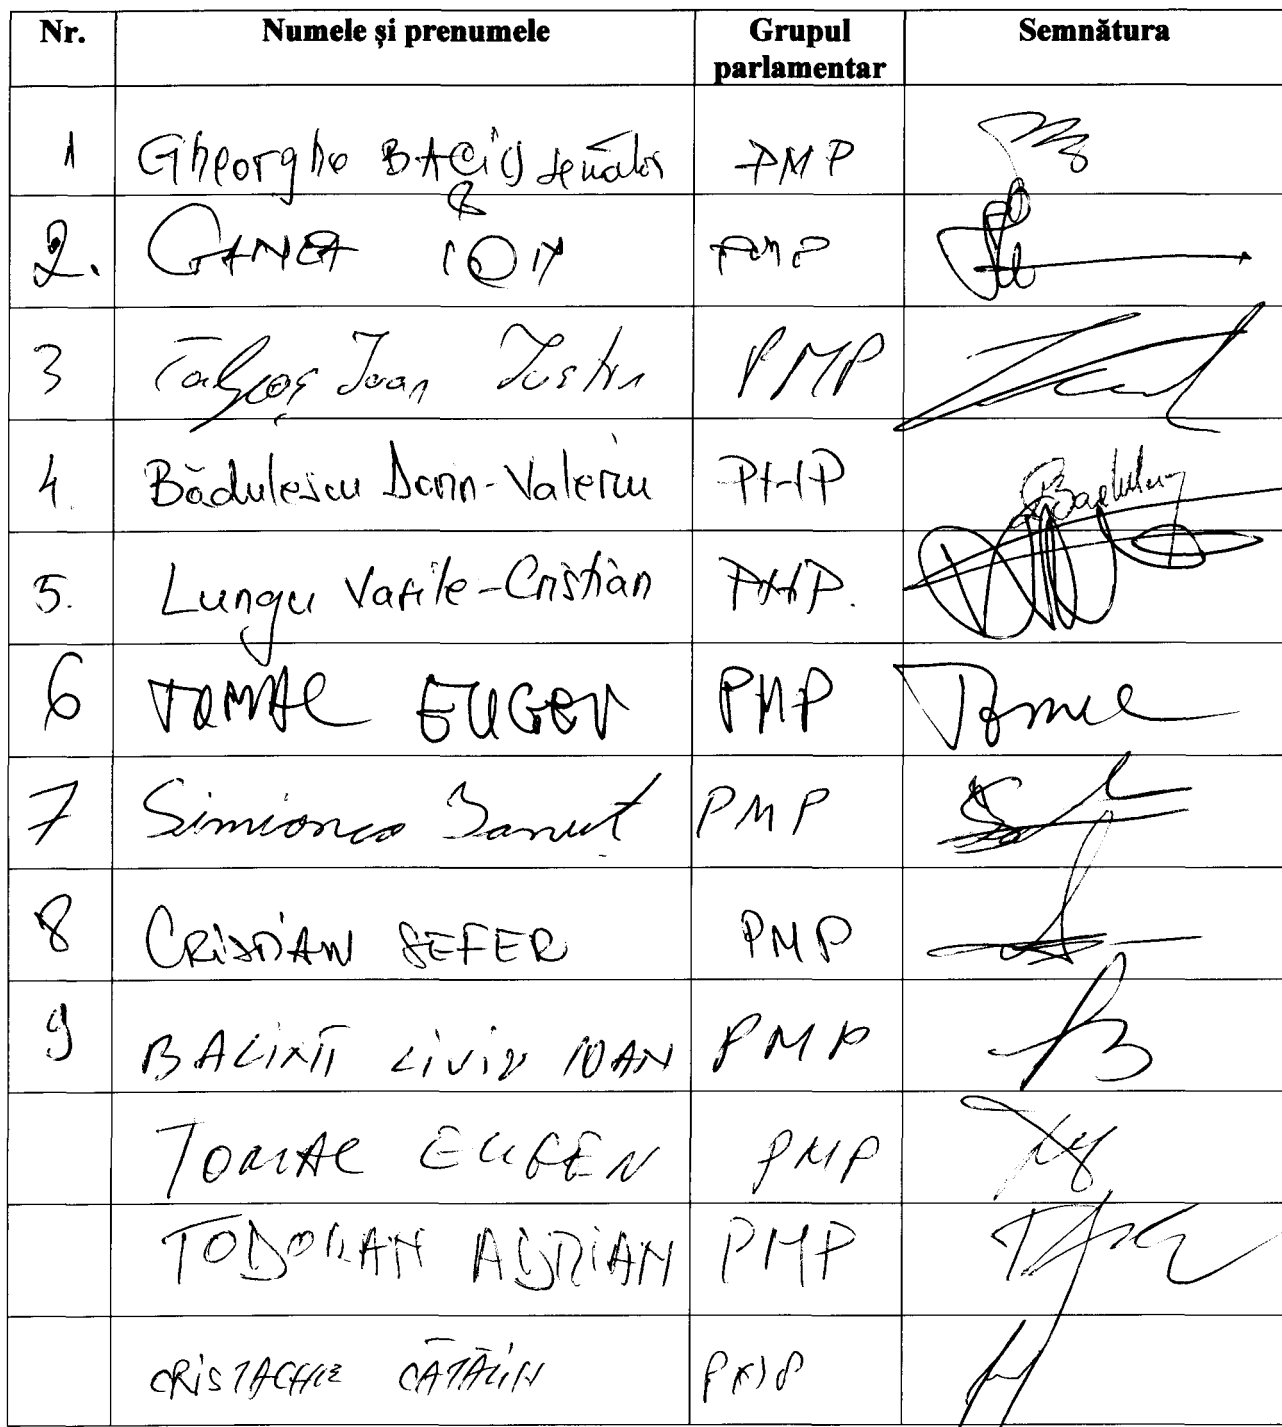 Nr. Numele și prenumele Grupul parlamentar Semnătura
1 Gheorghe BACIU senator PMP
2. GANEA ION PMP
3 Talpoș Ioan Iustin PMP
4. Bădulescu Dorin-Valeriu PMP
5. Lungu Vasile-Cristian PMP.
6 TOMAC EUGEN PMP Tomac
7 Simionca Ionuț PMP
8 CRISTIAN SEFER PMP
9 BALINT LIVIU IOAN PMP
TOMAC EUGEN PMP
TODORAN ADRIAN PMP
CRISTACHE CĂTĂLIN PMP